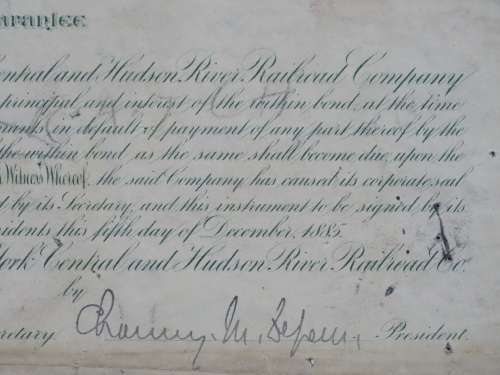 arantee
Central and Hudson River Railroad Company
principal and interest of the within bond, at the time
in default of payment of any part thereof by the
the within bond as the same shall become due, upon the
Witness Whereof, the said Company has caused its corporate seal
by its Secretary, and this instrument to be signed by its
idents this fifth day of December, 1885.
York Central and Hudson River Railroad Co.
by
cretary. Chauncey M. Depew, President.